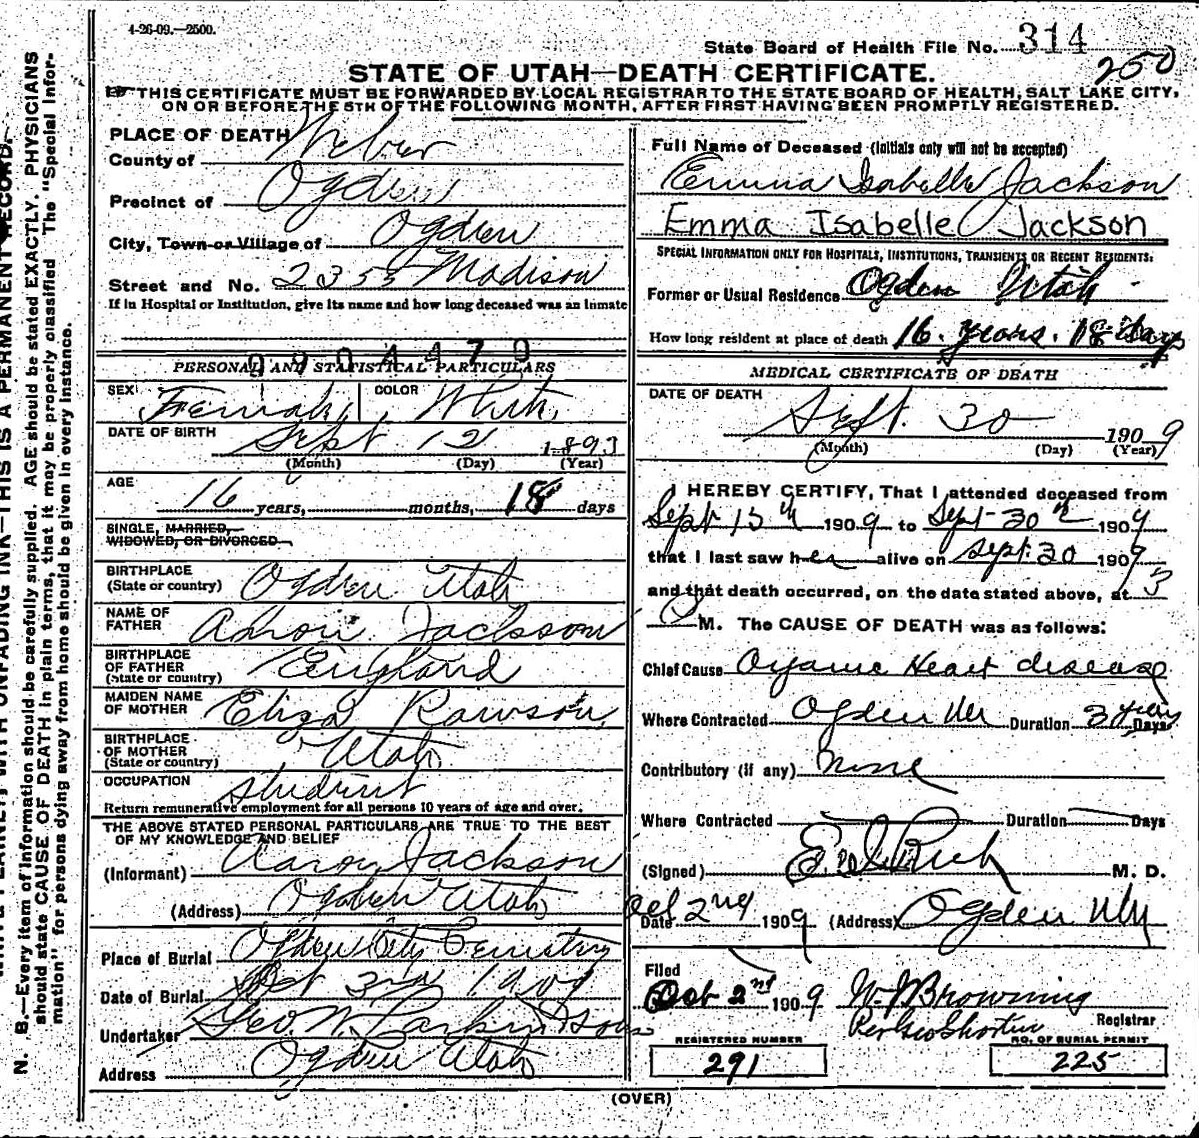 4-26-09.—2500.
State Board of Health File No. 314
250
STATE OF UTAH—DEATH CERTIFICATE.
THIS CERTIFICATE MUST BE FORWARDED BY LOCAL REGISTRAR TO THE STATE BOARD OF HEALTH, SALT LAKE CITY,
ON OR BEFORE THE 5TH OF THE FOLLOWING MONTH, AFTER FIRST HAVING BEEN PROMPTLY REGISTERED.
PLACE OF DEATH
County of Weber
Precinct of Ogden
City, Town or Village of Ogden
Street and No. 2353 Madison
If in Hospital or Institution, give its name and how long deceased was an inmate
0904479
PERSONAL AND STATISTICAL PARTICULARS
SEX Female COLOR White
DATE OF BIRTH Sept 12 1893
(Month) (Day) (Year)
AGE 16 years, months, 18 days
SINGLE, MARRIED,
WIDOWED, OR DIVORCED
BIRTHPLACE
(State or country) Ogden Utah
NAME OF
FATHER Aaron Jackson
BIRTHPLACE
OF FATHER
(State or country) England
MAIDEN NAME
OF MOTHER Eliza Rawson
BIRTHPLACE
OF MOTHER
(State or country) Utah
OCCUPATION student
Return remunerative employment for all persons 10 years of age and over.
THE ABOVE STATED PERSONAL PARTICULARS ARE TRUE TO THE BEST
OF MY KNOWLEDGE AND BELIEF
(Informant) Aaron Jackson
(Address) Ogden Utah
Place of Burial Ogden City Cemetry
Date of Burial Oct 3rd 1909
Undertaker Geo. W. Larkin & Sons
Address Ogden Utah
Full Name of Deceased (Initials only will not be accepted)
Emma Isabelle Jackson
Emma Isabelle Jackson
SPECIAL INFORMATION ONLY FOR HOSPITALS, INSTITUTIONS, TRANSIENTS OR RECENT RESIDENTS:
Former or Usual Residence Ogden Utah
How long resident at place of death 16 years. 18 days
MEDICAL CERTIFICATE OF DEATH
DATE OF DEATH
Sept. 30 1909
(Month) (Day) (Year)
I HEREBY CERTIFY, That I attended deceased from
Sept 15th 1909 to Sept 30th 1909
that I last saw her alive on Sept. 30 1909
and that death occurred, on the date stated above, at 5
M. The CAUSE OF DEATH was as follows:
Chief Cause Organic Heart disease
Where Contracted Ogden Duration 3 years Days
Contributory (if any) None
Where Contracted Duration Days
(Signed) Rich M. D.
Oct 2nd
Date 1909 (Address) Ogden
Filed
Oct 2nd 1909 Browning
Per Geo Shorten Registrar
REGISTERED NUMBER
291
NO. OF BURIAL PERMIT
225
(OVER)
N. B.—Every item of information should be carefully supplied. AGE should be stated EXACTLY. PHYSICIANS
should state CAUSE OF DEATH in plain terms, that it may be properly classified. The "Special Infor-
mation" for persons dying away from home should be given in every instance.
UNFADING INK—THIS IS A PERMANENT RECORD.